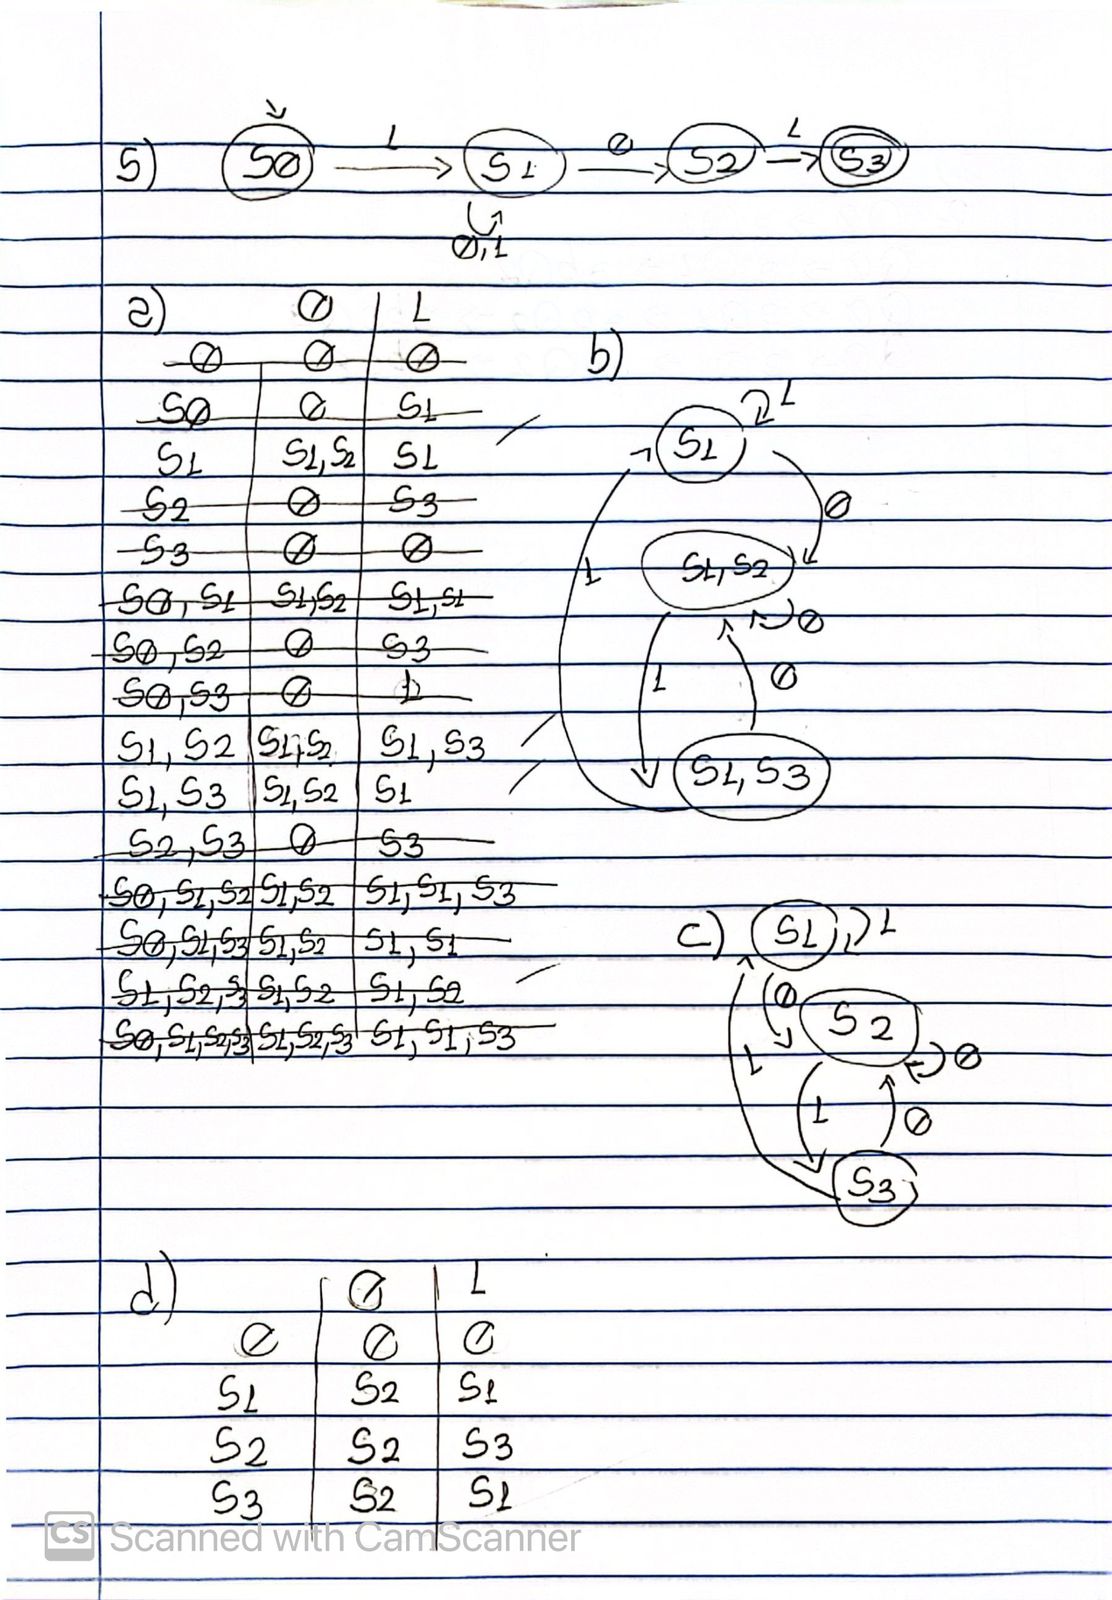 5) S0 1 S1 0 S2 1 S3
0,1
a) 0 1
∅ ∅ ∅
S0 ∅ S1
S1 S1,S2 S1
S2 ∅ S3
S3 ∅ ∅
S0,S1 S1,S2 S1,S1
S0,S2 ∅ S3
S0,S3 ∅
S1,S2 S1,S2 S1,S3
S1,S3 S1,S2 S1
S2,S3 ∅ S3
S0,S1,S2 S1,S2 S1,S1,S3
S0,S1,S3 S1,S2 S1,S1
S1,S2,S3 S1,S2 S1,S2
S0,S1,S2,S3 S1,S2,S3 S1,S1,S3
b)
1
S1
0
1
S1,S2
0
1 0
S1,S3
c) S1 1
0
S2
1 0
1 0
S3
d) 0 1
∅ ∅ ∅
S1 S2 S1
S2 S2 S3
S3 S2 S1
CS Scanned with CamScanner